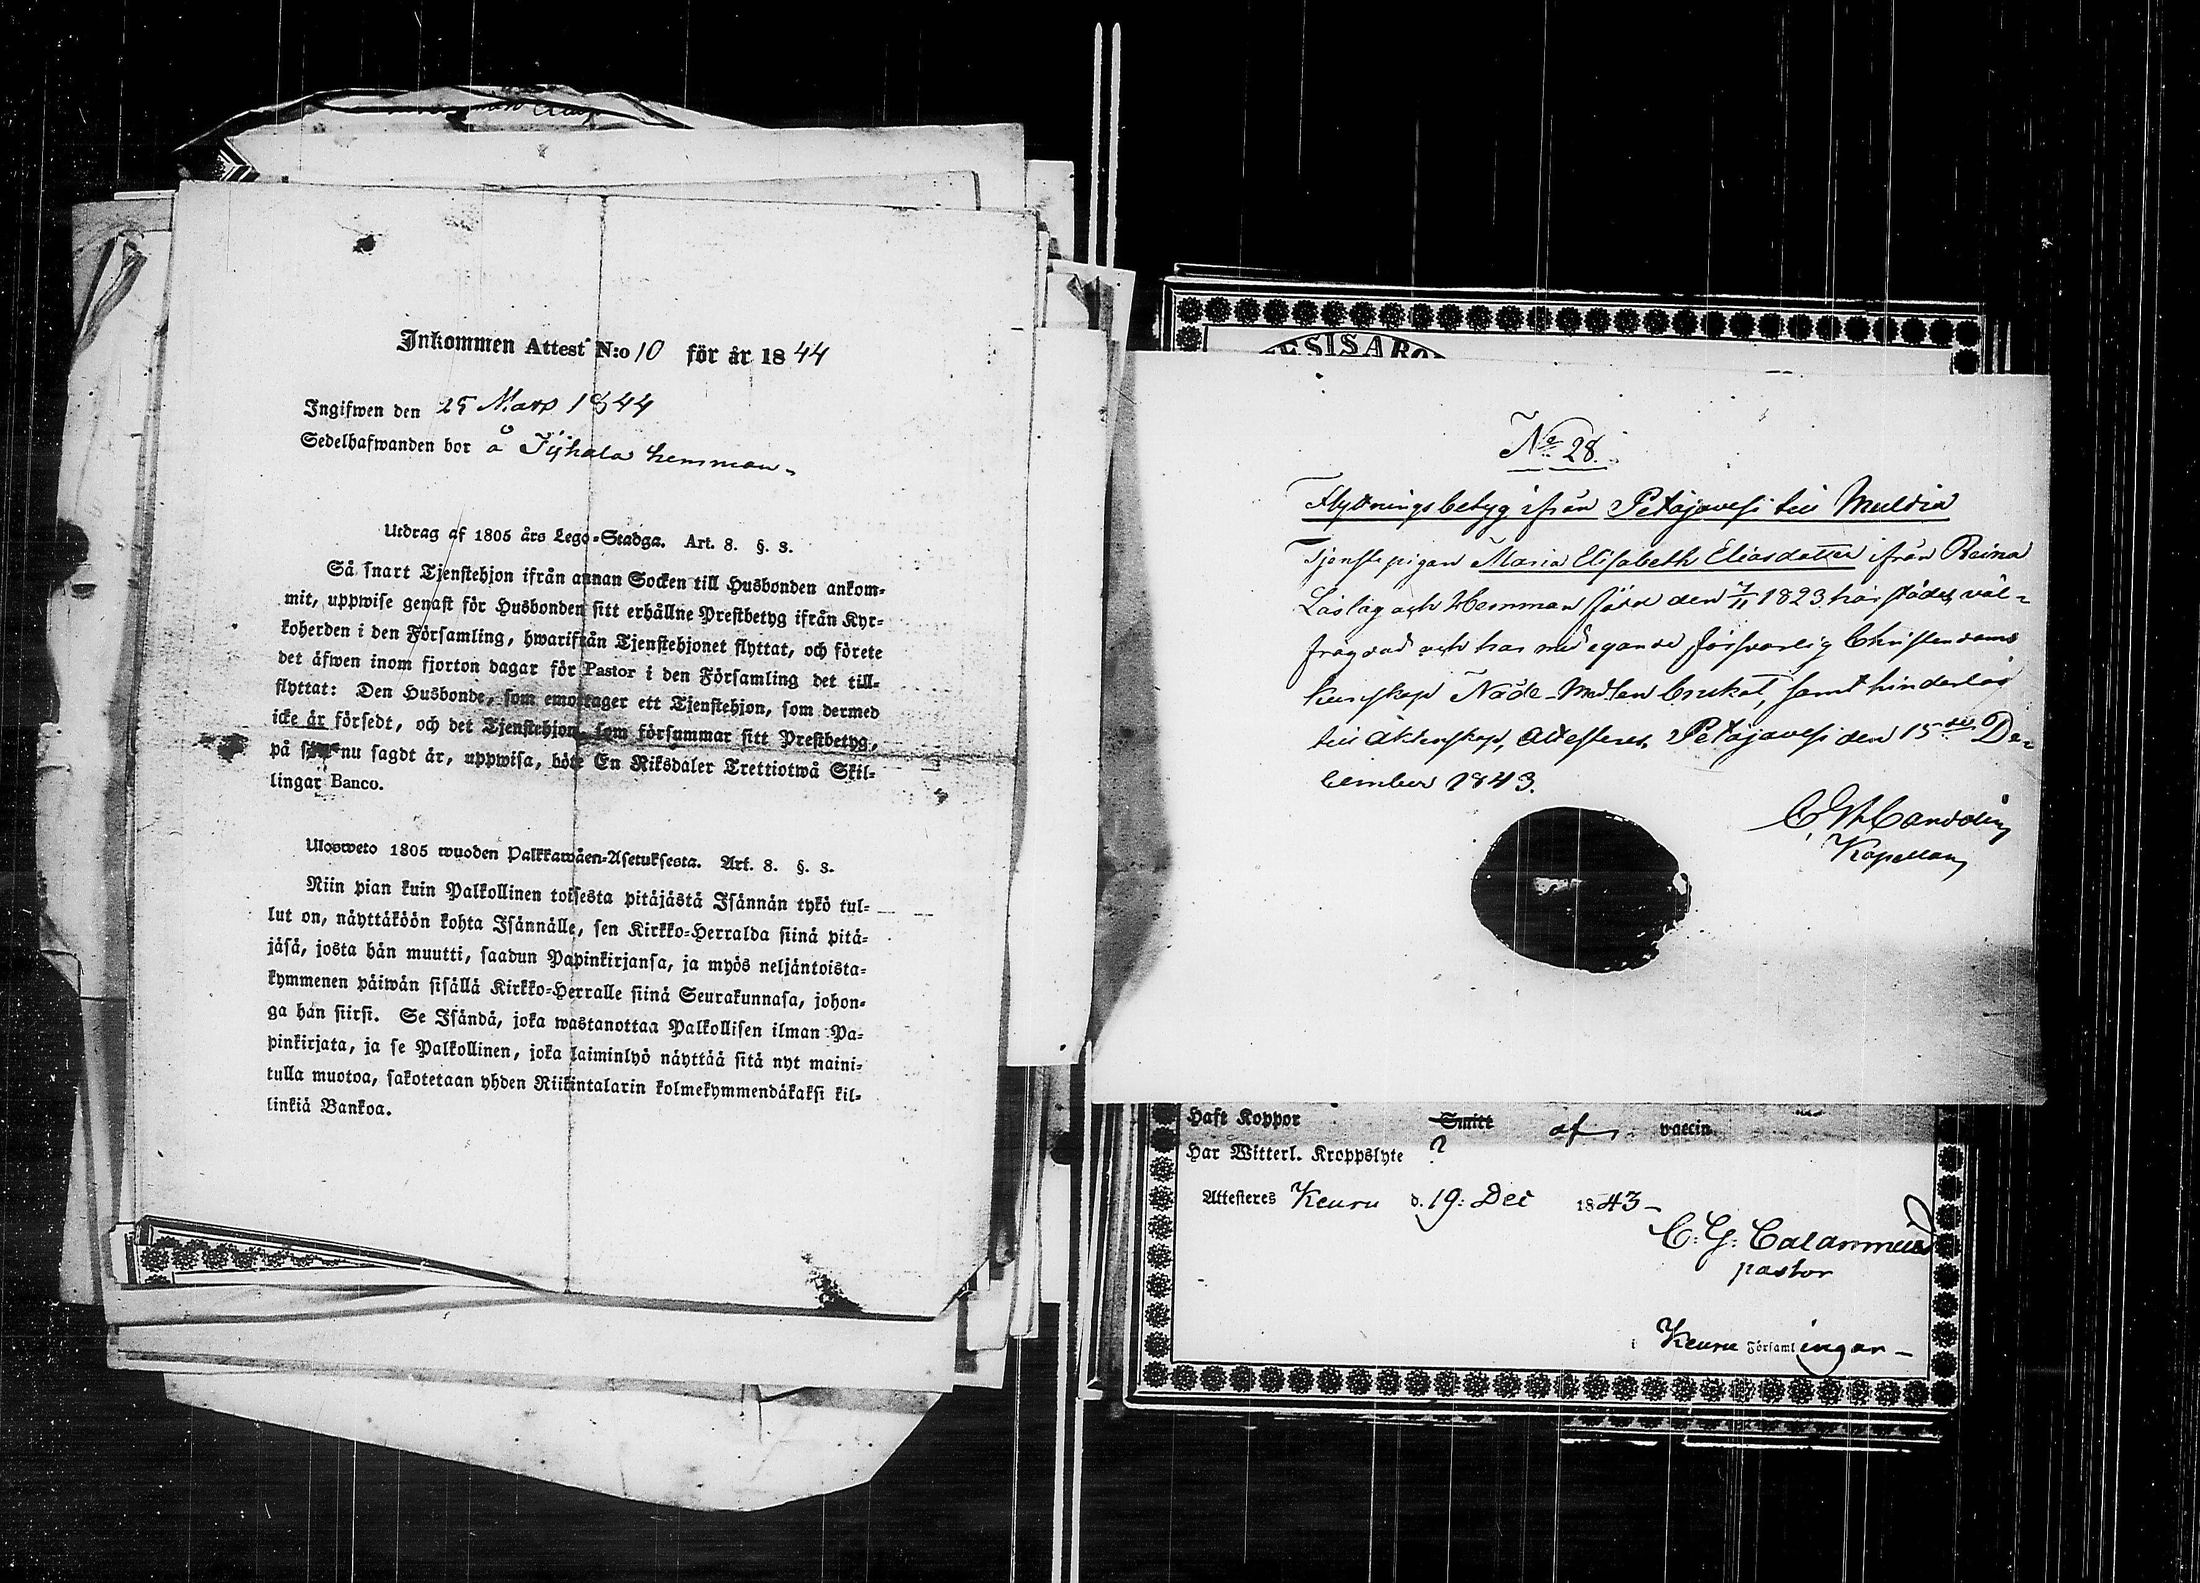 Inkommen Attest N:o 10 för år 1844
Ingifwen den 25 Mars 1844
Sedelhafwanden bor å Jyhala hemman
Utdrag af 1805 års Lego-Stadga. Art. 8. §. 3.
Så snart Tjenstehjon ifrån annan Socken till Husbonden ankom-
mit, uppwise genast för Husbonden sitt erhållne Prestbetyg ifrån Kyr-
koherden i den Församling, hwarifrån Tjenstehjonet flyttat, och förete
det äfwen inom fjorton dagar för Pastor i den Församling det till-
flyttat: Den Husbonde, som emottager ett Tjenstehjon, som dermed
icke är försedt, och det Tjenstehjon, som försummar sitt Prestbetyg,
på sätt nu sagdt är, uppwisa, böte En Riksdaler Trettiotwå Skil-
lingar Banco.
Ulosweto 1805 wuoden Palkkawäen-Asetuksesta. Art. 8. §. 3.
Niin pian kuin Palkollinen toisesta pitäjästä Isännän tykö tul-
lut on, näyttäköön kohta Isännälle, sen Kirkko-Herralda siinä pitä-
jäsä, josta hän muutti, saadun Papinkirjansa, ja myös neljäntoista-
kymmenen päiwän sisällä Kirkko-Herralle siinä Seurakunnasa, johon-
ga hän siirsi. Se Isändä, joka wastanottaa Palkollisen ilman Pa-
pinkirjata, ja se Palkollinen, joka laiminlyö näyttää sitä nyt maini-
tulla muotoa, sakotetaan yhden Riikintalarin kolmekymmendäkaksi kil-
linkiä Bankoa.
No 28.
Flyttningsbetyg ifrån Petäjävesi till Multia
Tjenstepigan Maria Elisabeth Eliasdotter ifrån Reina
Låslag och Hemman född den 7/11 1823 här städes, väl-
frägdad och har med egande försvarlig Christendoms
kunskap Nåde-Medlen brukat, samt hinderlös
till äktenskap, attesteres, Petäjävesi den 15de De-
cember 1843.
Kapellan
Haft Koppor Smitt af vaccin
Har Witterl. Kroppslyte ?
Attesteres Keuru d. 19: Dec 1843
C: G: Calamnius
pastor
i Keuru Församlingar